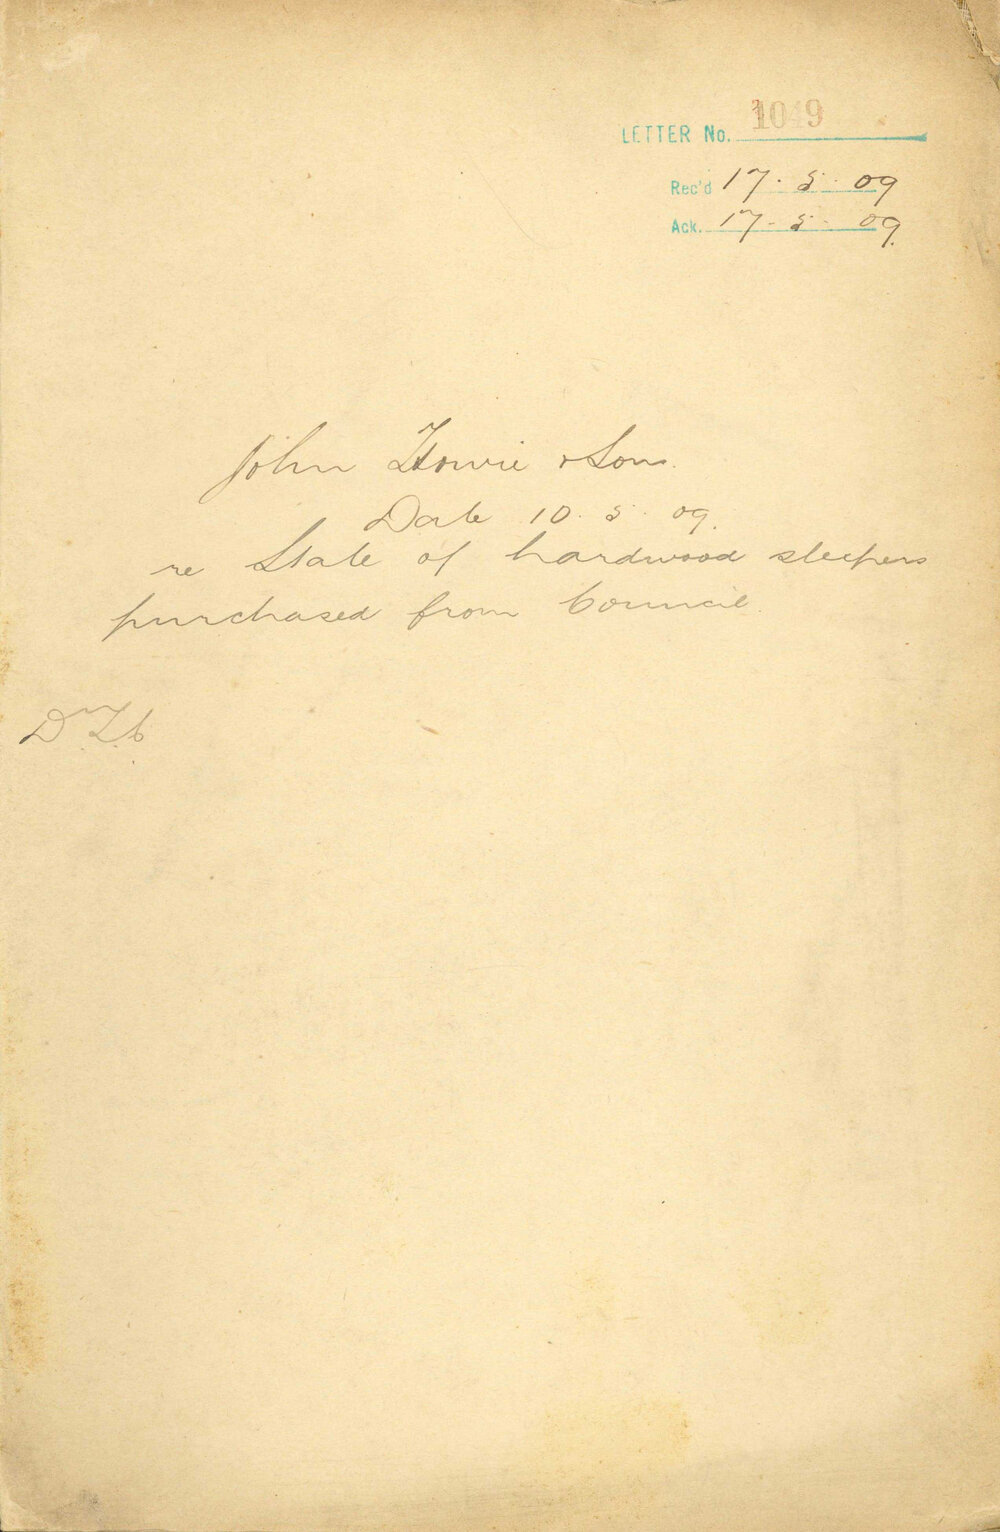 LETTER No. 1049
Rec'd 17. 5. 09
Ack. 17. 5. 09.
John Howie & Son.
Date 10. 5. 09.
re State of hardwood sleepers
purchased from Council.